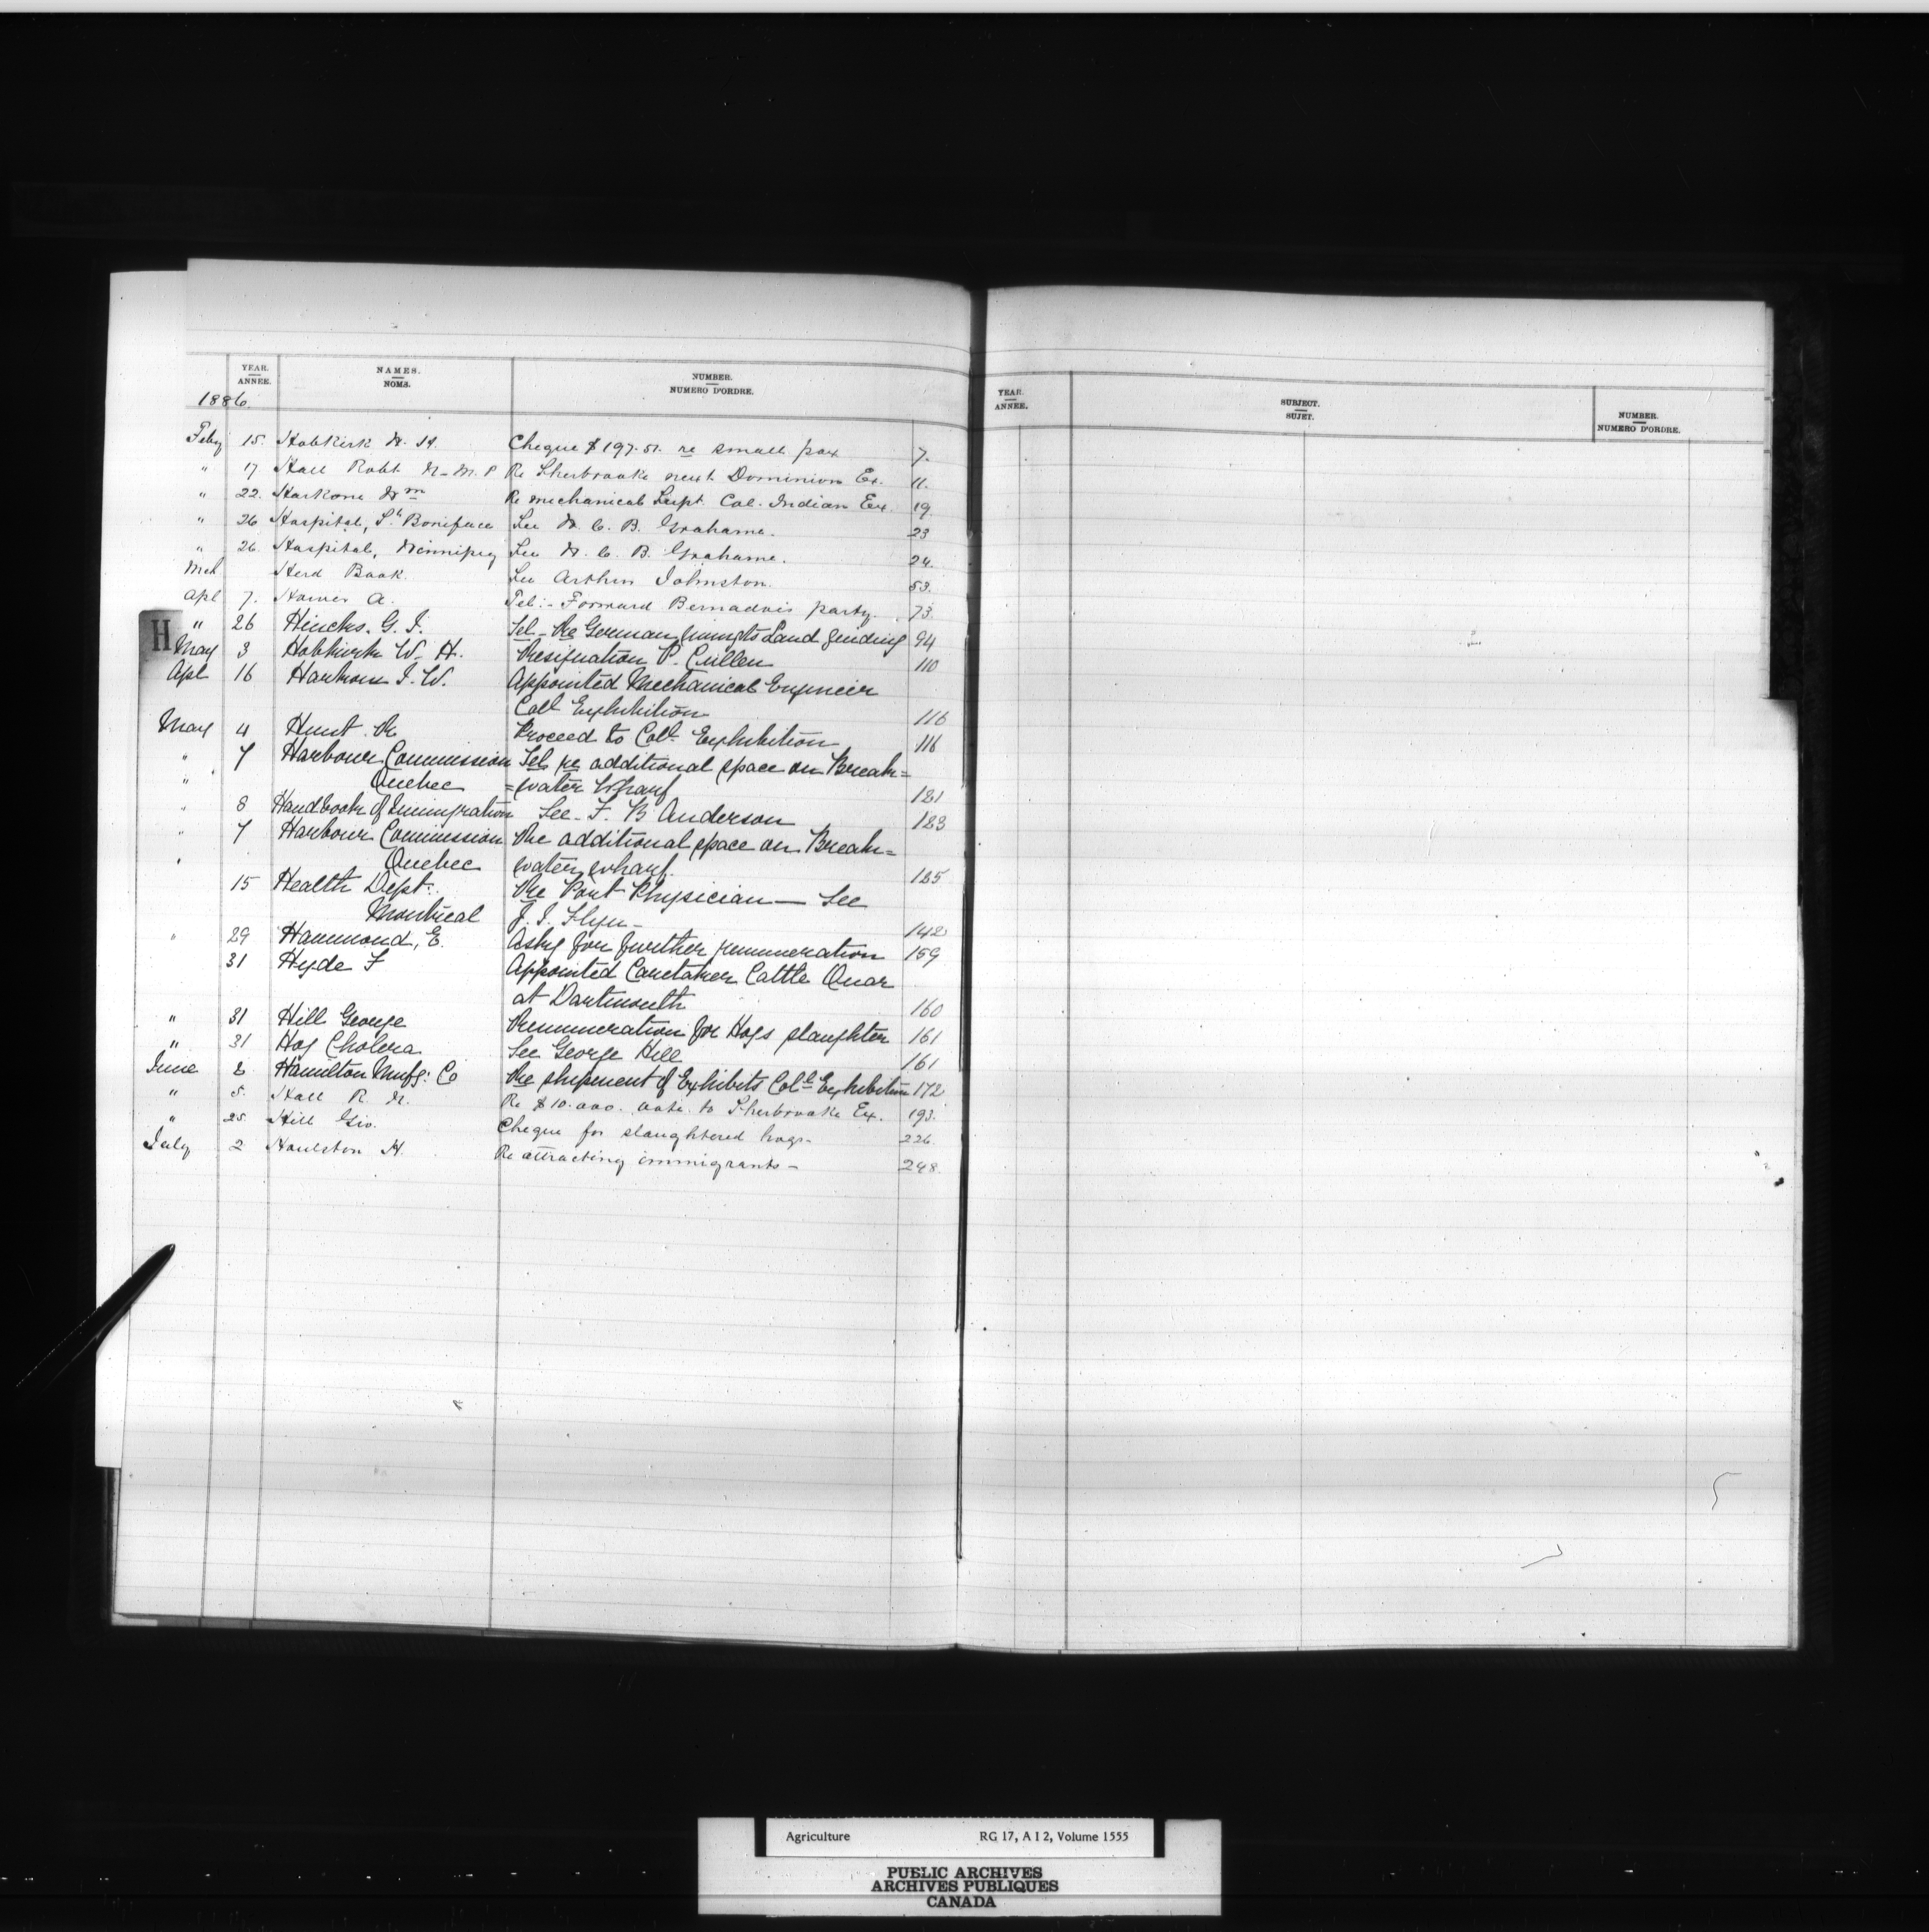 YEAR. NAMES. NUMBER.
ANNEE. NOMS. NUMERO D'ORDRE.
1886.
Feby 15. Hobkirk W. H. Cheque $197.51. re small pox 7.
" 17 Hall Robt N. M.P Re Sherbrooke next Dominion Ex. 11.
" 22. Harkom Wm Re mechanical Supt. Col. Indian Ex. 19
" 26 Hospital, St. Boniface See W. C. B. Grahame. 23
" 26. Hospital, Winnipeg See W. C. B. Grahame. 24.
Mch Herd Book. See Arthur Johnston. 53.
Apl 7. A. Tel:- Forward party. 73.
H
" 26 Hincks. G. J. Tel - Re German Land 94
May 3 Hobkirk W. H. Resignation P. Cullen 110
Apl 16 Harkom J. W. Appointed Mechanical Engineer
Coll Exhibition 116
May 4 Hunt. R Proceed to Coll Exhibition 116
" 7 Harbour Commission Tel re additional space on Break=
" Quebec =water Wharf 121
" 8 Handbook of Immigration See - F. B Anderson 123
" 7 Harbour Commission Re additional space on Break=
" Quebec water wharf. 125
15 Health Dept: Re Port Physician — See
Montreal J. J. Flyn - 142
" 29 Hammond, E. Askg for further remuneration 159
31 Hyde F Appointed Caretaker Cattle Quar
at Dartmouth 160
" 31 Hill George Remuneration for Hogs slaughter 161
" 31 Hog Cholera See George Hill 161
June 2 Hamilton Mufg: Co Re shipment of Exhibits Coll Exhibition 172
" 5. Hall R. N. Re $10.000. vote. to Sherbrooke Ex. 193.
" 25. Hill Geo. Cheque for slaughtered hogs - 226.
July 2 Houlston H. Re attracting immigrants - 248.
YEAR. SUBJECT. NUMBER.
ANNEE. SUJET. NUMERO D'ORDRE.
Agriculture RG 17, A I 2, Volume 1555
PUBLIC ARCHIVES
ARCHIVES PUBLIQUES
CANADA